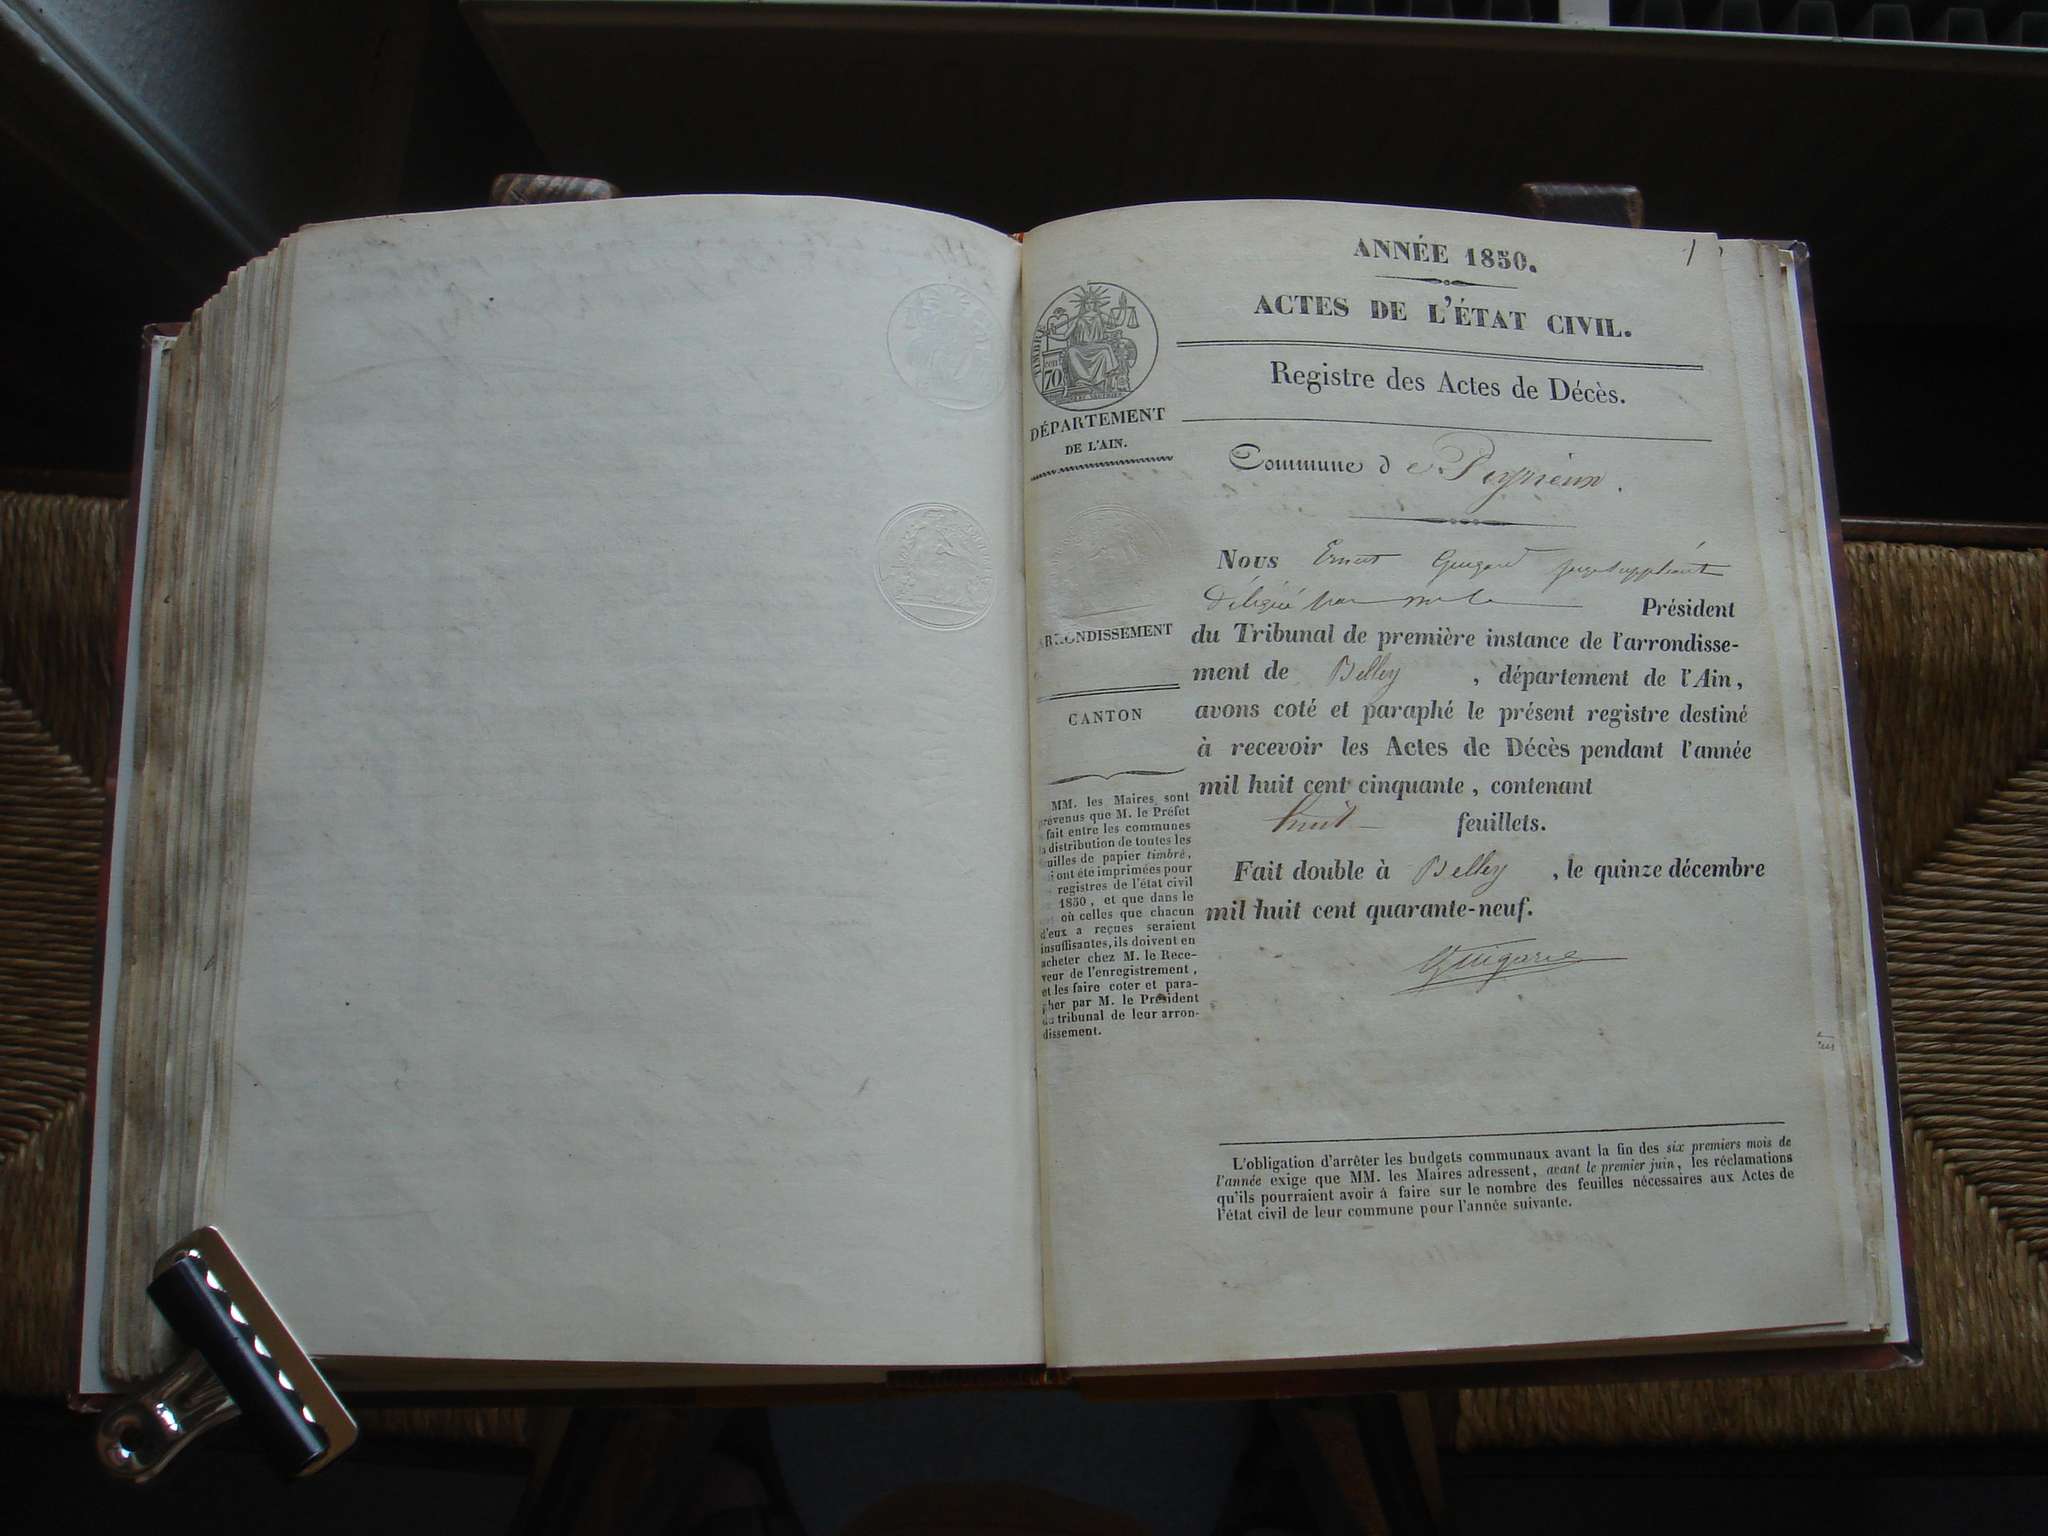 ANNÉE 1850.
1
ACTES DE L'ÉTAT CIVIL.
TIMBRE
70
Registre des Actes de Décès.
DÉPARTEMENT
DE L'AIN.
Commune de Peyrieux.
Nous Ernest Guigard juge suppléant
Délégué par Président
du Tribunal de première instance de l'arrondisse-
ment de Belley, département de l'Ain,
avons coté et paraphé le présent registre destiné
à recevoir les Actes de Décès pendant l'année
mil huit cent cinquante, contenant
huit feuillets.
Fait double à Belley, le quinze décembre
mil huit cent quarante-neuf.
ARRONDISSEMENT
CANTON
MM. les Maires sont
prévenus que M. le Préfet
fait entre les communes
la distribution de toutes les
feuilles de papier timbré,
qui ont été imprimées pour
registres de l'état civil
1850, et que dans le
où celles que chacun
d'eux a reçues seraient
insuffisantes, ils doivent en
acheter chez M. le Rece-
veur de l'enregistrement,
et les faire coter et para-
pher par M. le Président
du tribunal de leur arron-
dissement.
L'obligation d'arrêter les budgets communaux avant la fin des six premiers mois de
l'année exige que MM. les Maires adressent, avant le premier juin, les réclamations
qu'ils pourraient avoir à faire sur le nombre des feuilles nécessaires aux Actes de
l'état civil de leur commune pour l'année suivante.